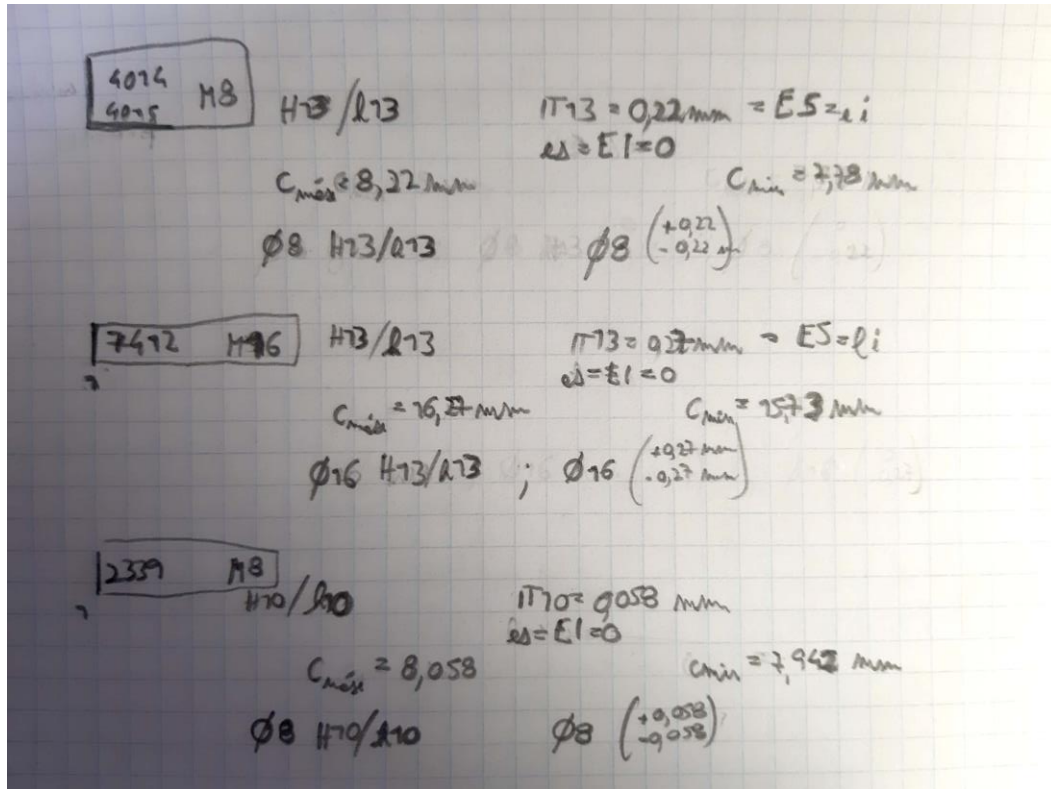 4014
4015 M8
H13/h13 IT13 = 0,22 mm = ES = ei
es = EI = 0
Cmáx = 8,22 mm Cmin = 7,78 mm
Ø8 H13/h13 Ø8 (+0,22 -0,22
7412 M16 H13/h13 IT13 = 0,27 mm = ES = ei
es = EI = 0
Cmáx = 16,27 mm Cmin = 15,73 mm
Ø16 H13/h13 ; Ø16 (+0,27 mm -0,27 mm)
2339 M8
H10/h10 IT10 = 0,058 mm
es = EI = 0
Cmáx = 8,058 cmin = 7,942 mm
Ø8 H10/h10 Ø8 (+0,058 -0,058)